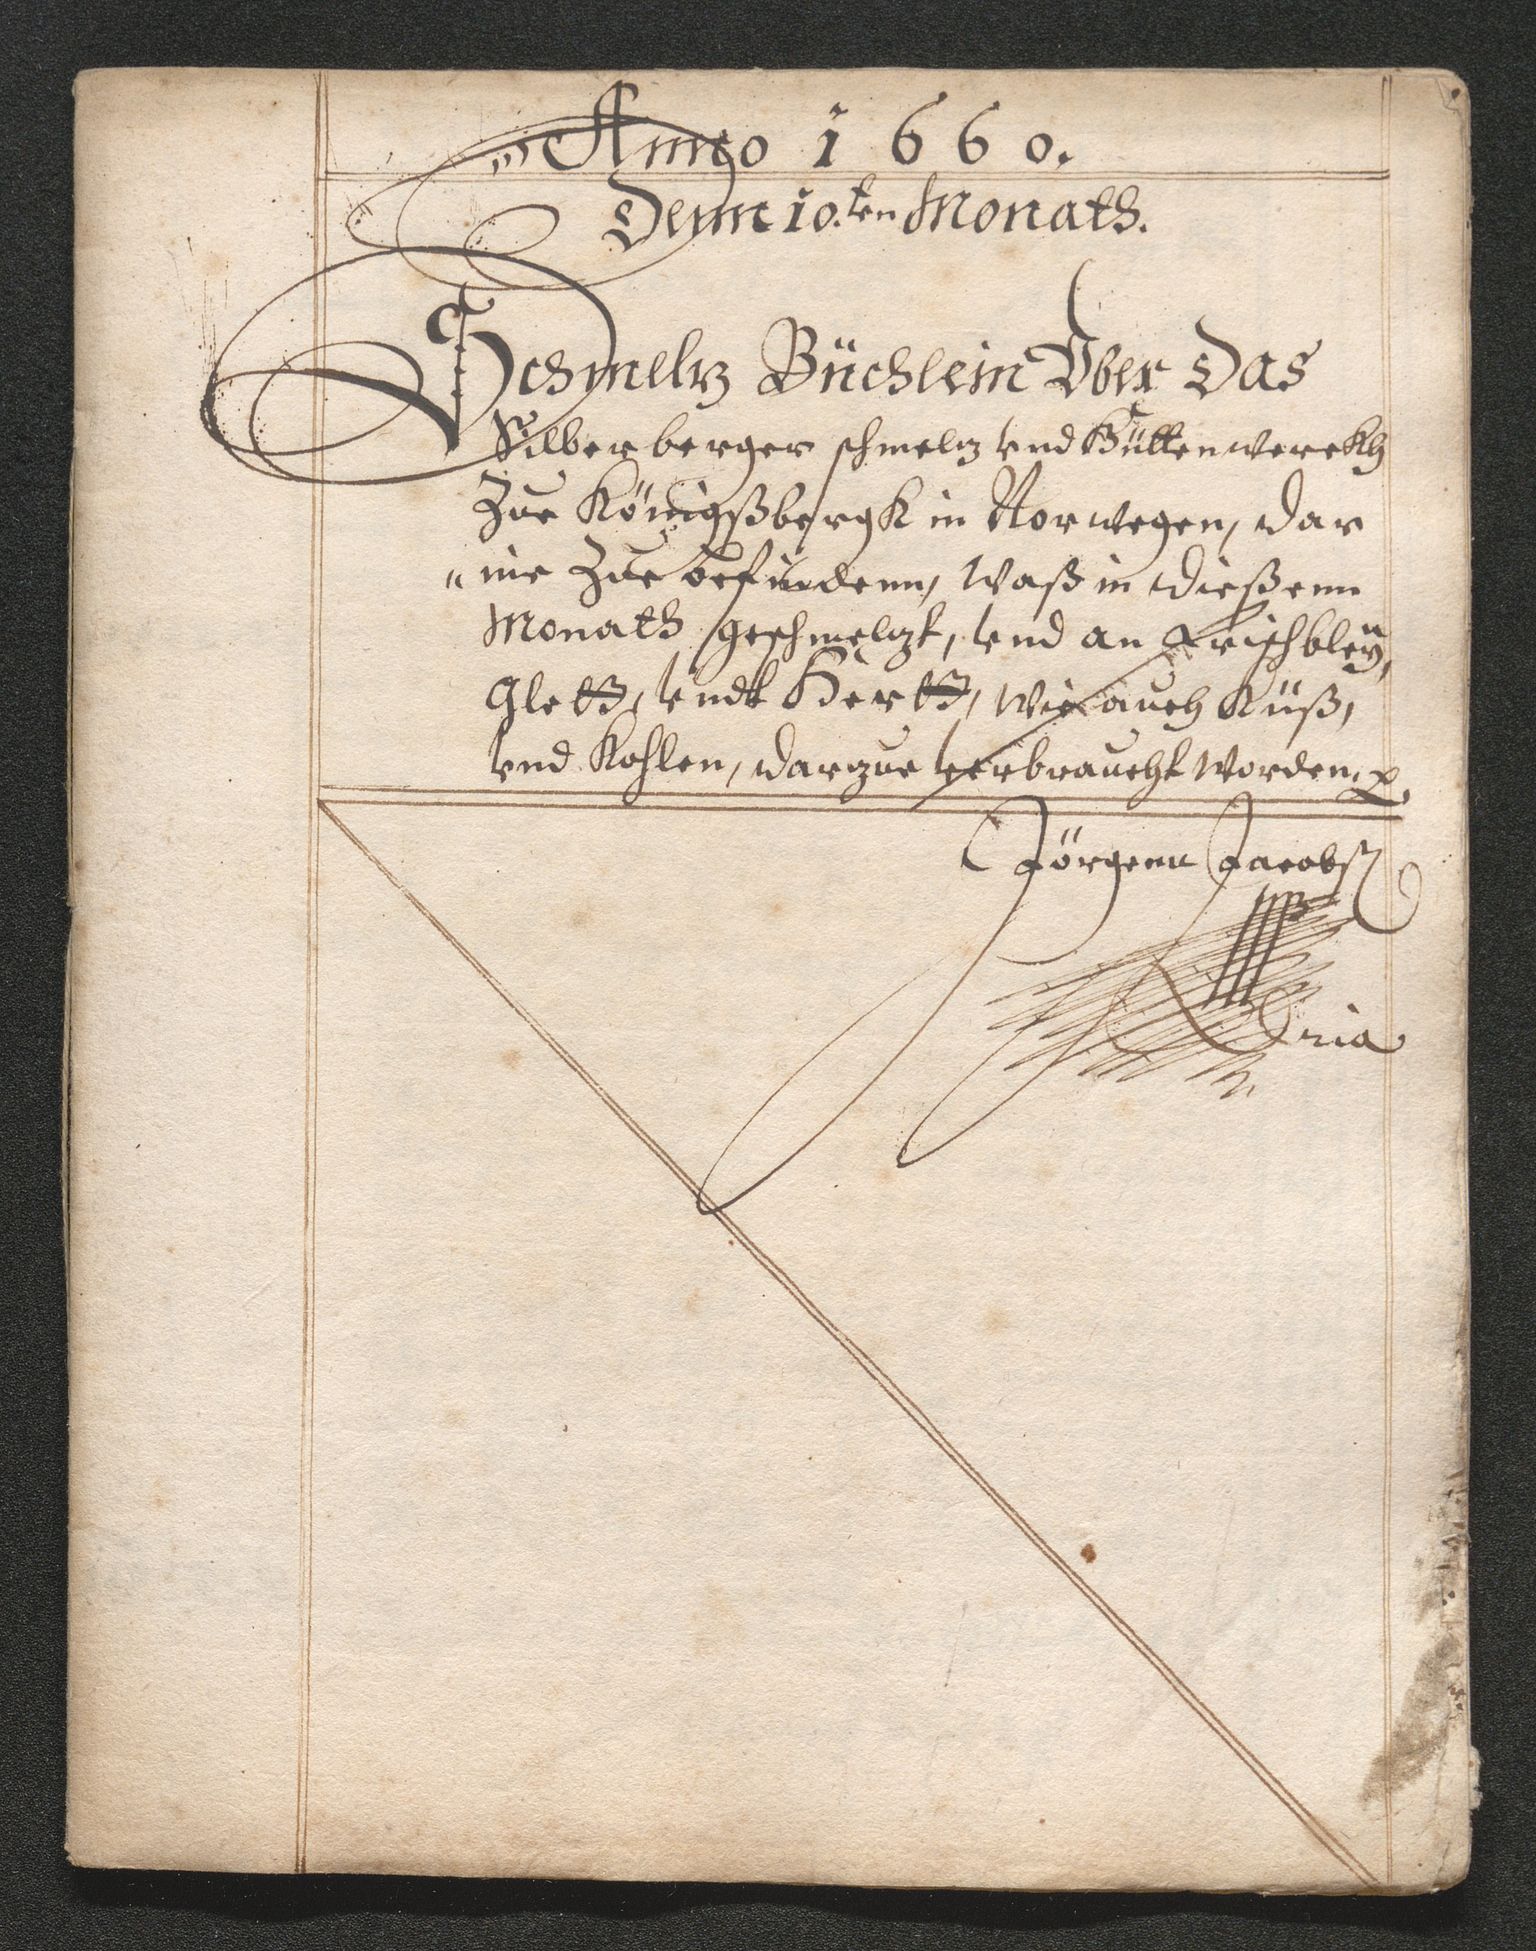 Anno 1660.
Denn 10.ten Monath.
Schmeltz Büchlein Vber Das
Silberberger schmeltz vnd Hüttenwerckh
Zue Königßbergk in Norwegen, dar
"nie Zue befindenn, Waß in dießenn
Monath geschmeltzt, vnd an Frischbleÿ,
Glett, vndt Hertt, Wie auch Küß,
vnd Kohlen, darzue verbraucht Worden.
Jörgenn Jacobs